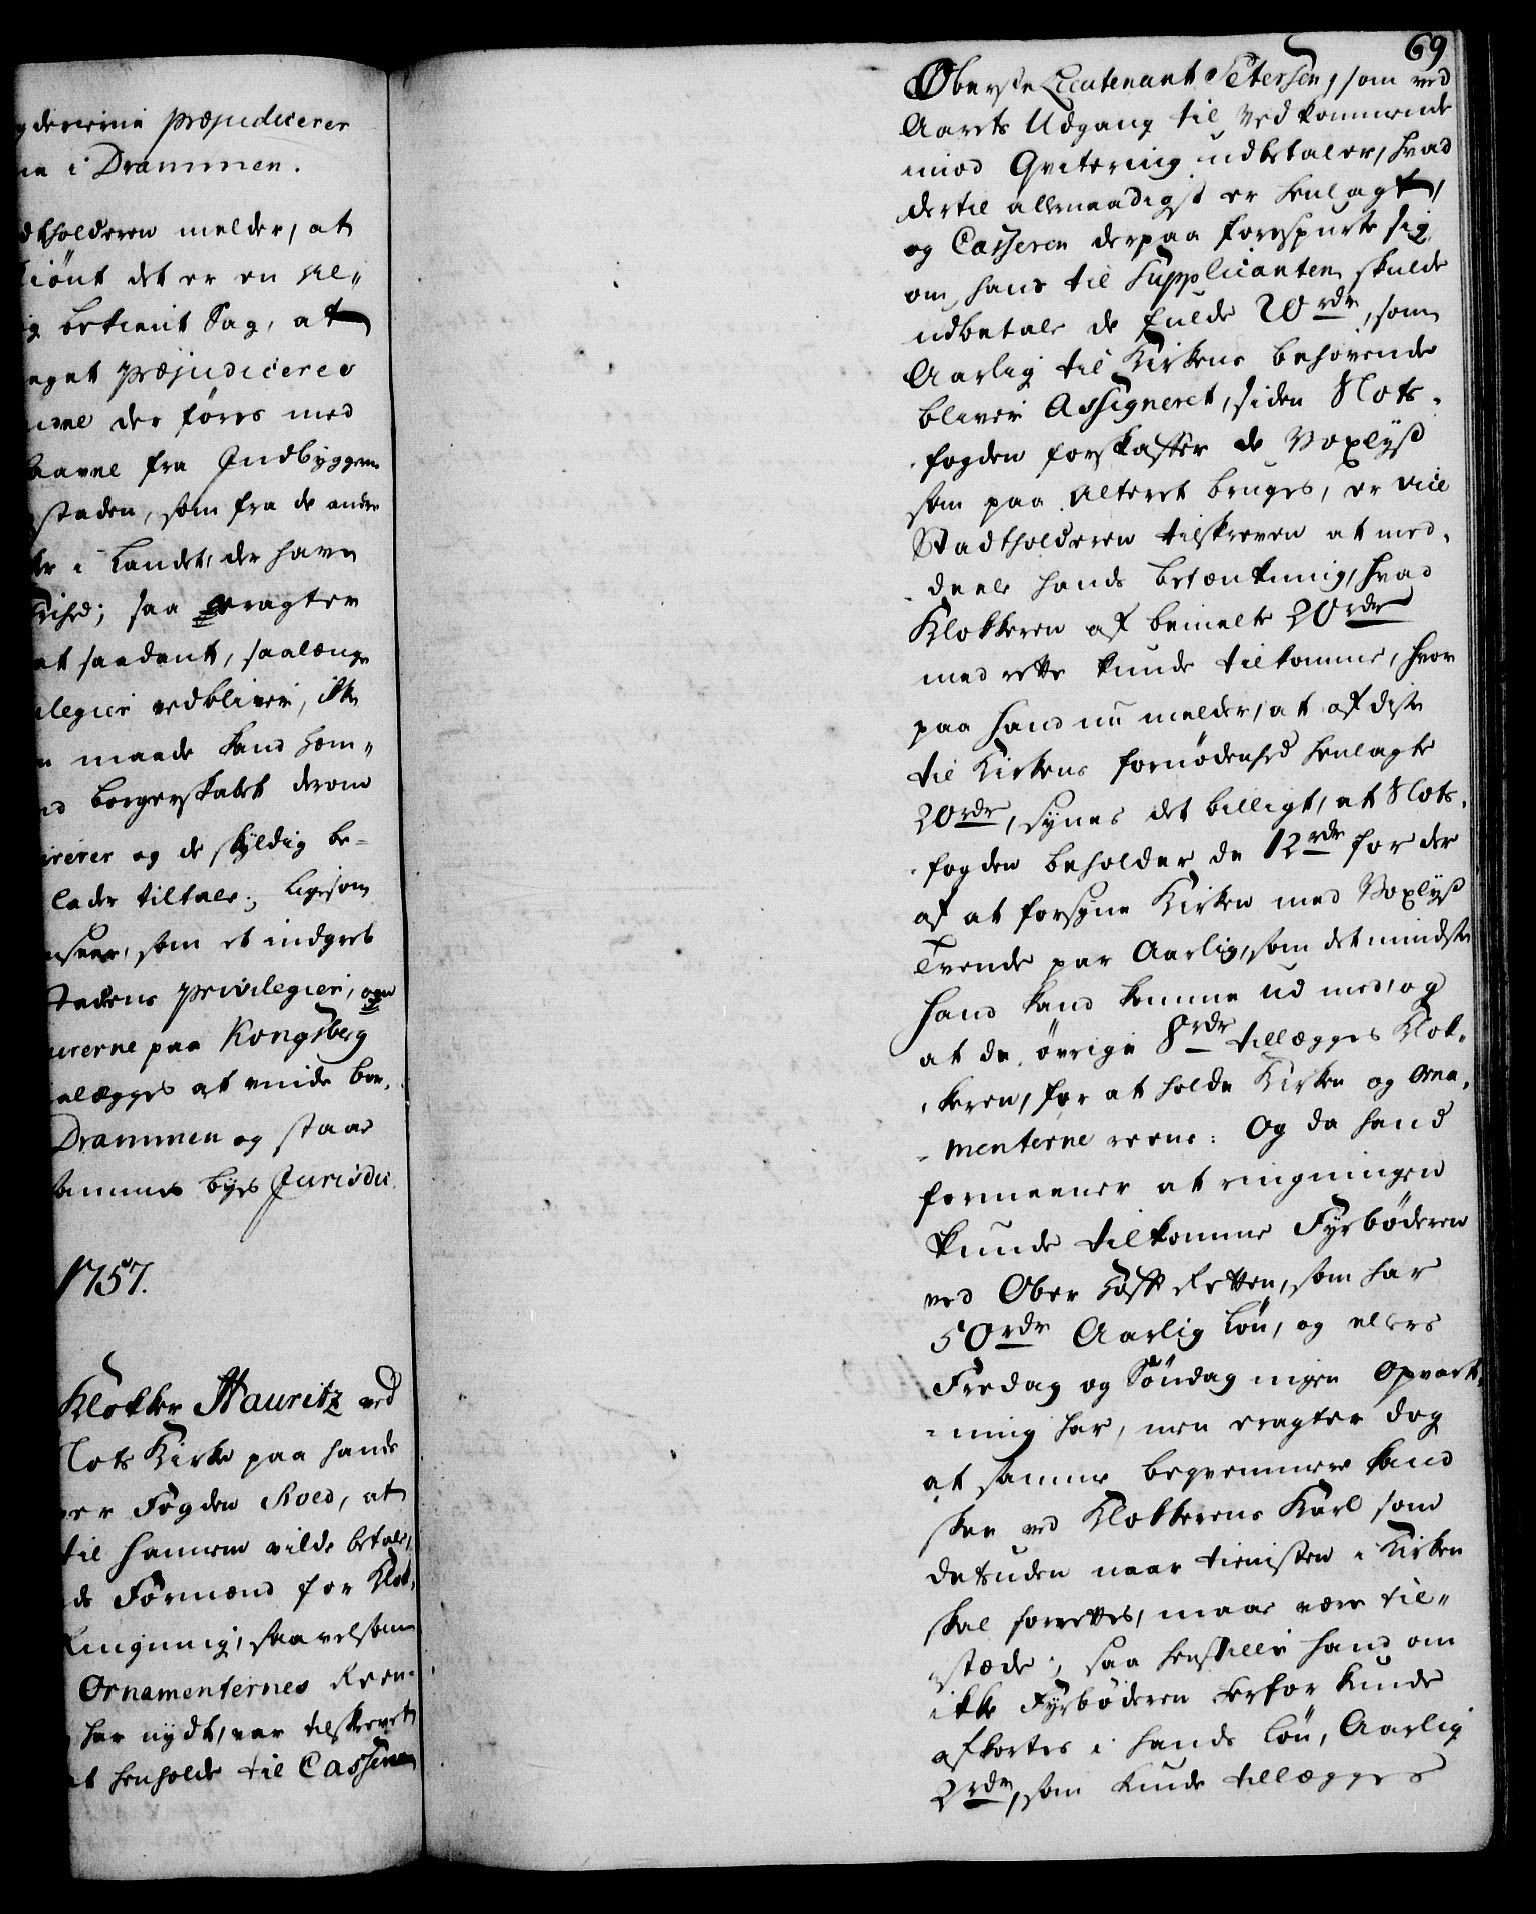 gdererne præjudicerer
ne i Drammen.
dtholderen melder, at
tiønt det er en vel-
ig betient Sag, at
eget præjudiceres
idne der føres med
haavne fra Indbyggerne
staden, som fra de andre
ter i Landet, der have
friehed; saa eragter
at saadant, saalænge
ilegier vedbliver, ikke
n maade kand hem-
ed borgerskabet derom
irerer og de skyldig be-
lader tiltale; ligesom
anseer, som et indgreb
Stadens privilegier, om
urerne paa Kongsberg
alægges at vinde bor-
Drammen og staae
sammes byes Jurisdic
1757.
Klokker Hauritz ved
Slots Kirke paa hands
ver Fogden Roed, at
til hannem vilde betale,
de Formænd for Klok-
Ringning, saavelsom
Ornamenternes Reen-
har nydt, var tilskrevet
at henholde til Casseren
69
Øberste Lieutenant Petersen, som ved
Aarets Udgang til Vedkommende
imod Qvitering udbetaler, hvad
dertil allernaadigst er henlagt,
og Casseren derpaa forespurte sig
om hand til Supplicanten skulde
udbetale de fulde 20 rdr, som
Aarlig til Kirkens behovende
bliver Assigneret, siden Slots-
fogden forskaffer de Voxlyß
som paa Alteret bruges, er Vice
Stadtholderen tilskreven at med-
deele hands betænkning, hvad
Klokkeren af bemelte 20 rdr
med rette kunde tilkomme, hvor
paa hand nu melder, at af diße
til Kirkens fornødenhed henlagte
20 rdr, synes det billigt, at Slots-
fogden beholder de 12 rdr for der
af at forsyne Kirken med Voxlyß
Tvende par Aarlig, som det mindste
hand kand komme ud med, og
at de øvrige 8 rdr tillægges Klok-
keren, for at holde Kirken og Orna-
menterne reene: Og da hand
formeener at ringningen
kunde tilkomme Fyrbøderen
ved Ober Hoff Retten, som har
50 rdr Aarlig Løn, og ellers
Fredag og Søndag ingen Opvart-
ning har, men eragter dog
at samme beqvemmere kand
skee ved Klokkerens Karl som
desuden naar tienisten i Kirken
skal forrettes, maae være til-
stæde; saa henstiller hand om
ikke Fyrbøderen herfor kunde
afkortes i hands Løn, Aarlig
2 rdr, som kunde tillægges